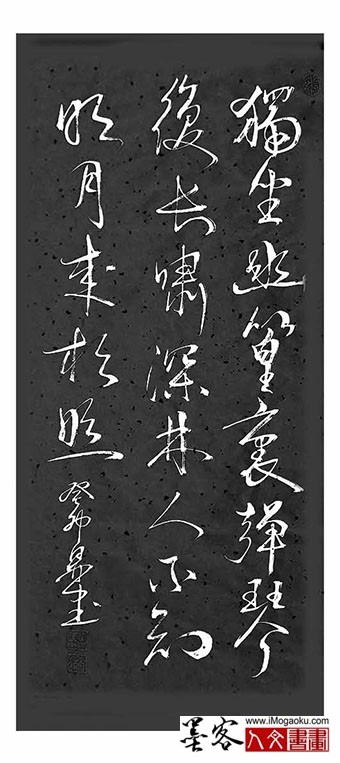 獨坐幽篁裏彈琴
復长嘯深林人不知
明月來相照
癸卯
www.iMogaoku.com
墨客
人文書畫